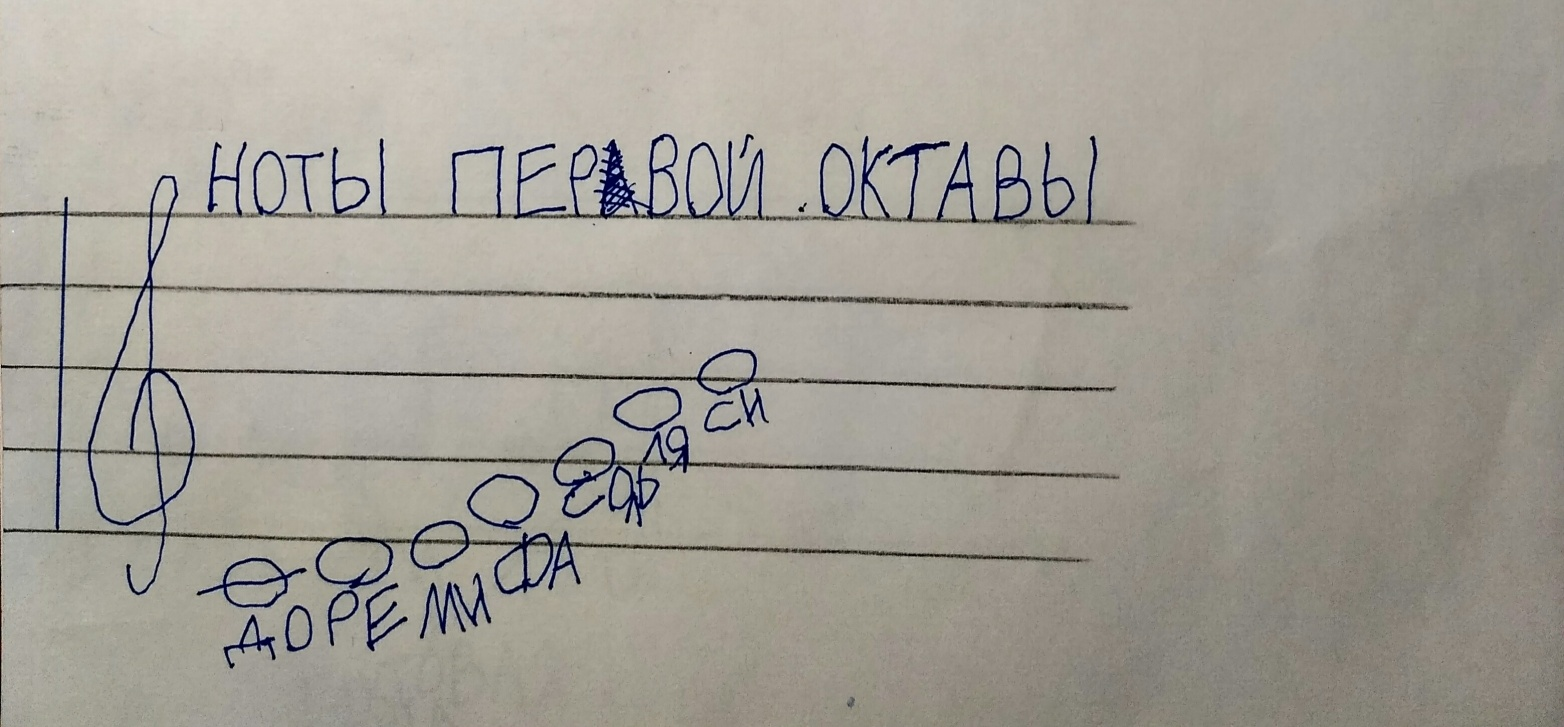 НОТЫ ПЕРВОЙ ОКТАВЫ
ДО РЕ МИ ФА СОЛЬ ЛЯ СИ